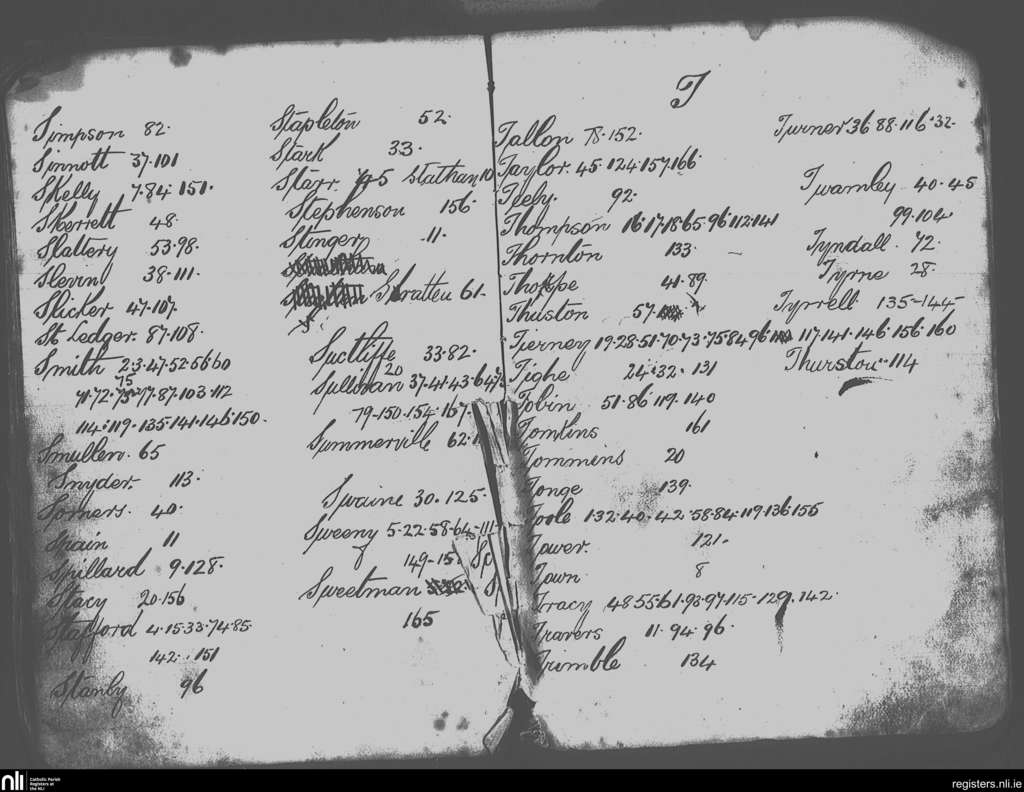 Simpson 82.
Sinnott 37.101
Skelly 7.84.151.
Skerrett 48.
Slattery 53.98.
Slevin 38.111.
Slicker 47.107
St Ledger. 87.108.
Smith 2.3.47.52.56 60
75
71.72.73.77.87.103.112
114.119.135.141.146 150.
Smullen. 65
Snyder. 113.
Somers. 40.
Spain 11
Spillard 9.128.
Stacy 20.156
Stafford 4.15.33.74.85.
142.151
Stanby 96
Stapleton 52.
Stark 33.
Starr. 45 Stathan 10
Stephenson 156.
Stinger 11.
Stratten 61.
Sutcliffe 33.82.
20
Sullivan 37.41.43.6
79.150.154.167.
Summerville 62.
Swaine 30.125.
Sweeny 5.22.58.64.111
149-15
Sweetman
165
T
Tallon 78.152.
Taylor. 45.124.157.166.
Teeby. 92.
Thompson 16.17.18.65.96.112.141
Thornton 133.
Thorpe 41.89.
Thuston 57.
Tierney 19.28.51.70.73.75 84.96 117.141.146.156.160
Tighe 24.32.131
Tobin 51.86 119.140
Tomkins 161
Tommins 20
Tonge 139.
Toole 1.32.40.42.58.84.119.136 155
Tower. 121.
Town 8
Tracy 48 55.61.93.97.115.129.142.
Travers 11.94.96.
Trimble 134
Turner 36 88.116.32.
Twamley 40.45
99.104
Tyndall. 72.
Tyrne 28.
Tyrrell 135-144
Thurston..114
nli
Catholic Parish
Registers at
the NLI
registers.nli.ie